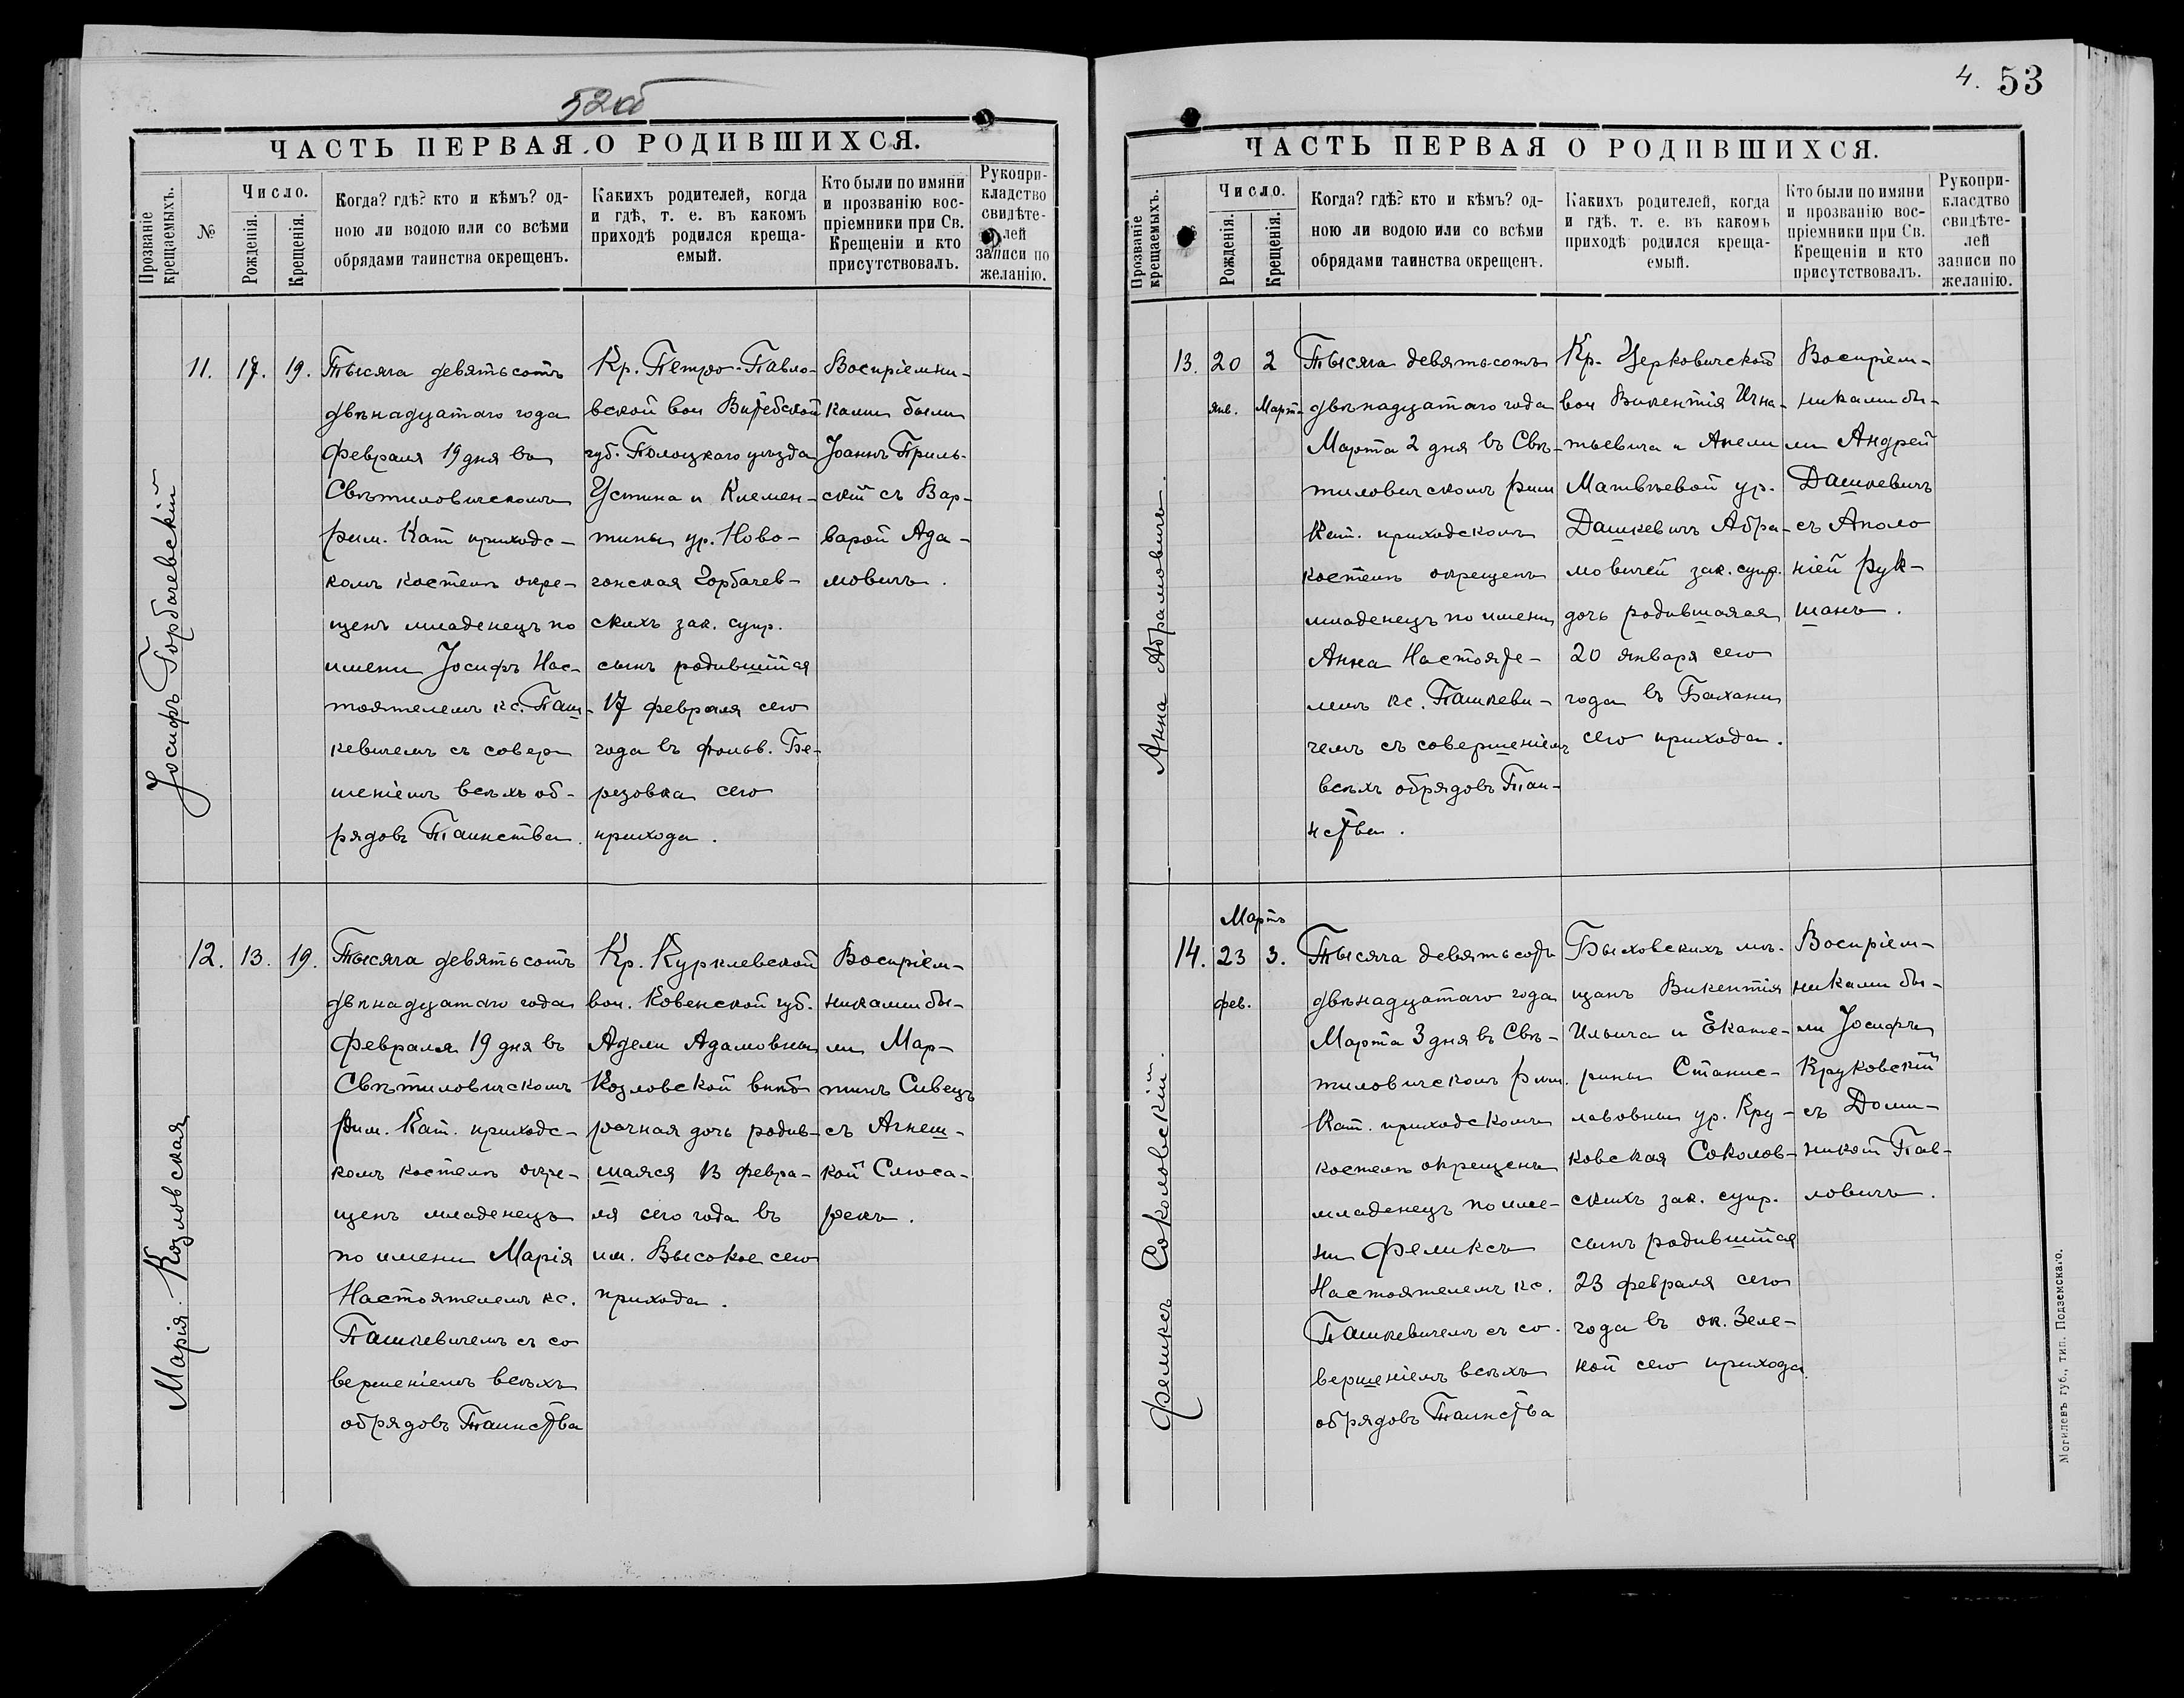 52об
ЧАСТЬ ПЕРВАЯ О РОДИВШИХСЯ.
Прозваніе крещаемыхъ.
№
Число.
Рожденія.
Крещенія.
Когда? гдѣ? кто и кѣмъ? од-
ною ли водою или со всѣми
обрядами таинства окрещенъ.
Какихъ родителей, когда
и гдѣ, т. е. въ какомъ
приходѣ родился креща-
емый.
Кто были по имяни
и прозванію вос-
пріемники при Св.
Крещеніи и кто
присутствовалъ.
Рукопри-
кладство
свидѣте-
лей
записи по
желанію.
Іосифъ Горбачевскій
11.
17.
19.
Тысяча девятьсотъ
двѣнадцатаго года
Февраля 19 дня въ
Свѣтиловическомъ
рим. Кат приходс-
комъ костелѣ окре-
щенъ младенецъ по
имени Іосифъ Нас-
тоятелемъ кс. Паш-
кевичемъ съ совер
шеніемъ всѣхъ об-
рядовъ Таинства.
Кр. Петро-Павло-
вской вол Витебской
губ. Полоцкаго уѣзда
Устина и Клемен-
тины ур. Ново-
гонская Горбачев-
скихъ зак. супр.
сынъ родившійся
17 февраля сего
года въ фольв. Бе-
резовка сего
прихода.
Воспріемни-
ками были
Іоаннъ Приль-
скій съ Вар-
варой Ада-
мовичъ.
Марія Козловская
12.
13.
19.
Тысяча девятьсотъ
двѣнадцатаго года
Февраля 19 дня въ
Свѣтиловическомъ
Рим. Кат. приходс-
комъ костелѣ окре-
щенъ младенецъ
по имени Марія
Настоятелемъ кс.
Пашкевичемъ съ со
вершеніемъ всѣхъ
обрядовъ Таинства
Кр. Куркlевской
вол. Ковенской губ.
Адели Адамовны
Козловской внѣб
рачная дочь родив-
шаяся 13 февра-
ля сего года въ
им. Высокое сего
прихода.
Воспріем-
никами бы-
ли Мар-
тинъ Сивецъ
съ Агнеш-
кой Слюса-
рекъ.
4. 53
ЧАСТЬ ПЕРВАЯ О РОДИВШИХСЯ.
Прозваніе крещаемыхъ.
Число.
Рожденія.
Крещенія.
Когда? гдѣ? кто и кѣмъ? од-
ною ли водою или со всѣми
обрядами таинства окрещенъ.
Какихъ родителей, когда
и гдѣ, т. е. въ какомъ
приходѣ родился креща-
емый.
Кто были по имяни
и прозванію вос-
пріемники при Св.
Крещеніи и кто
присутствовалъ.
Рукопри-
класдтво
свидѣте-
лей
записи по
желанію.
Анна Абрамовичъ.
13.
20
янв.
2
Март-
Тысяча девятьсотъ
двѣнадцатаго года
Марта 2 дня въ Свѣ-
тиловическомъ рим
Кат. приходскомъ
костелѣ окрещенъ
младенецъ по имени
Анна Настояте-
лемъ кс. Пашкеви-
чемъ съ совершеніемъ
всѣхъ обрядовъ Таи-
нства.
Кр. Церковичской
вол Викентія Игна-
тьевича и Анели
Матвѣевой ур.
Дашкевичъ Абра-
мовичей зак. супр.
дочь родившаяся
20 января сего
года въ Бахани
сего прихода.
Воспріем-
никами бы-
ли Андрей
Дашкевичъ
съ Аполо
ніей Рук-
шанъ.
Феликсъ Соколовскій.
14.
Мартъ
23
фев.
3.
Тысяча девятьсотъ
двѣнадцатаго года
Марта 3 дня въ Свѣ-
тиловическомъ рим.
Кат. приходскомъ
костелѣ окрещенъ
младенецъ по име-
ни Феликсъ
Настоятелемъ кс.
Пашкевичемъ съ со-
вершеніемъ всѣхъ
обрядовъ Таинства
Быховскихъ мѣ-
щанъ Викентія
Ильича и Екате-
рины Станис-
лавовны ур. Кру-
ковская Соколов-
скихъ зак. супр.
сынъ родившійся
23 февраля сего
года въ ок. Зеле-
ной сего прихода.
Воспріем-
никами бы-
ли Іосифъ
Круковскій
съ Доми-
никой Пав-
ловичъ.
Могилевъ губ., тип. Подземскаго.